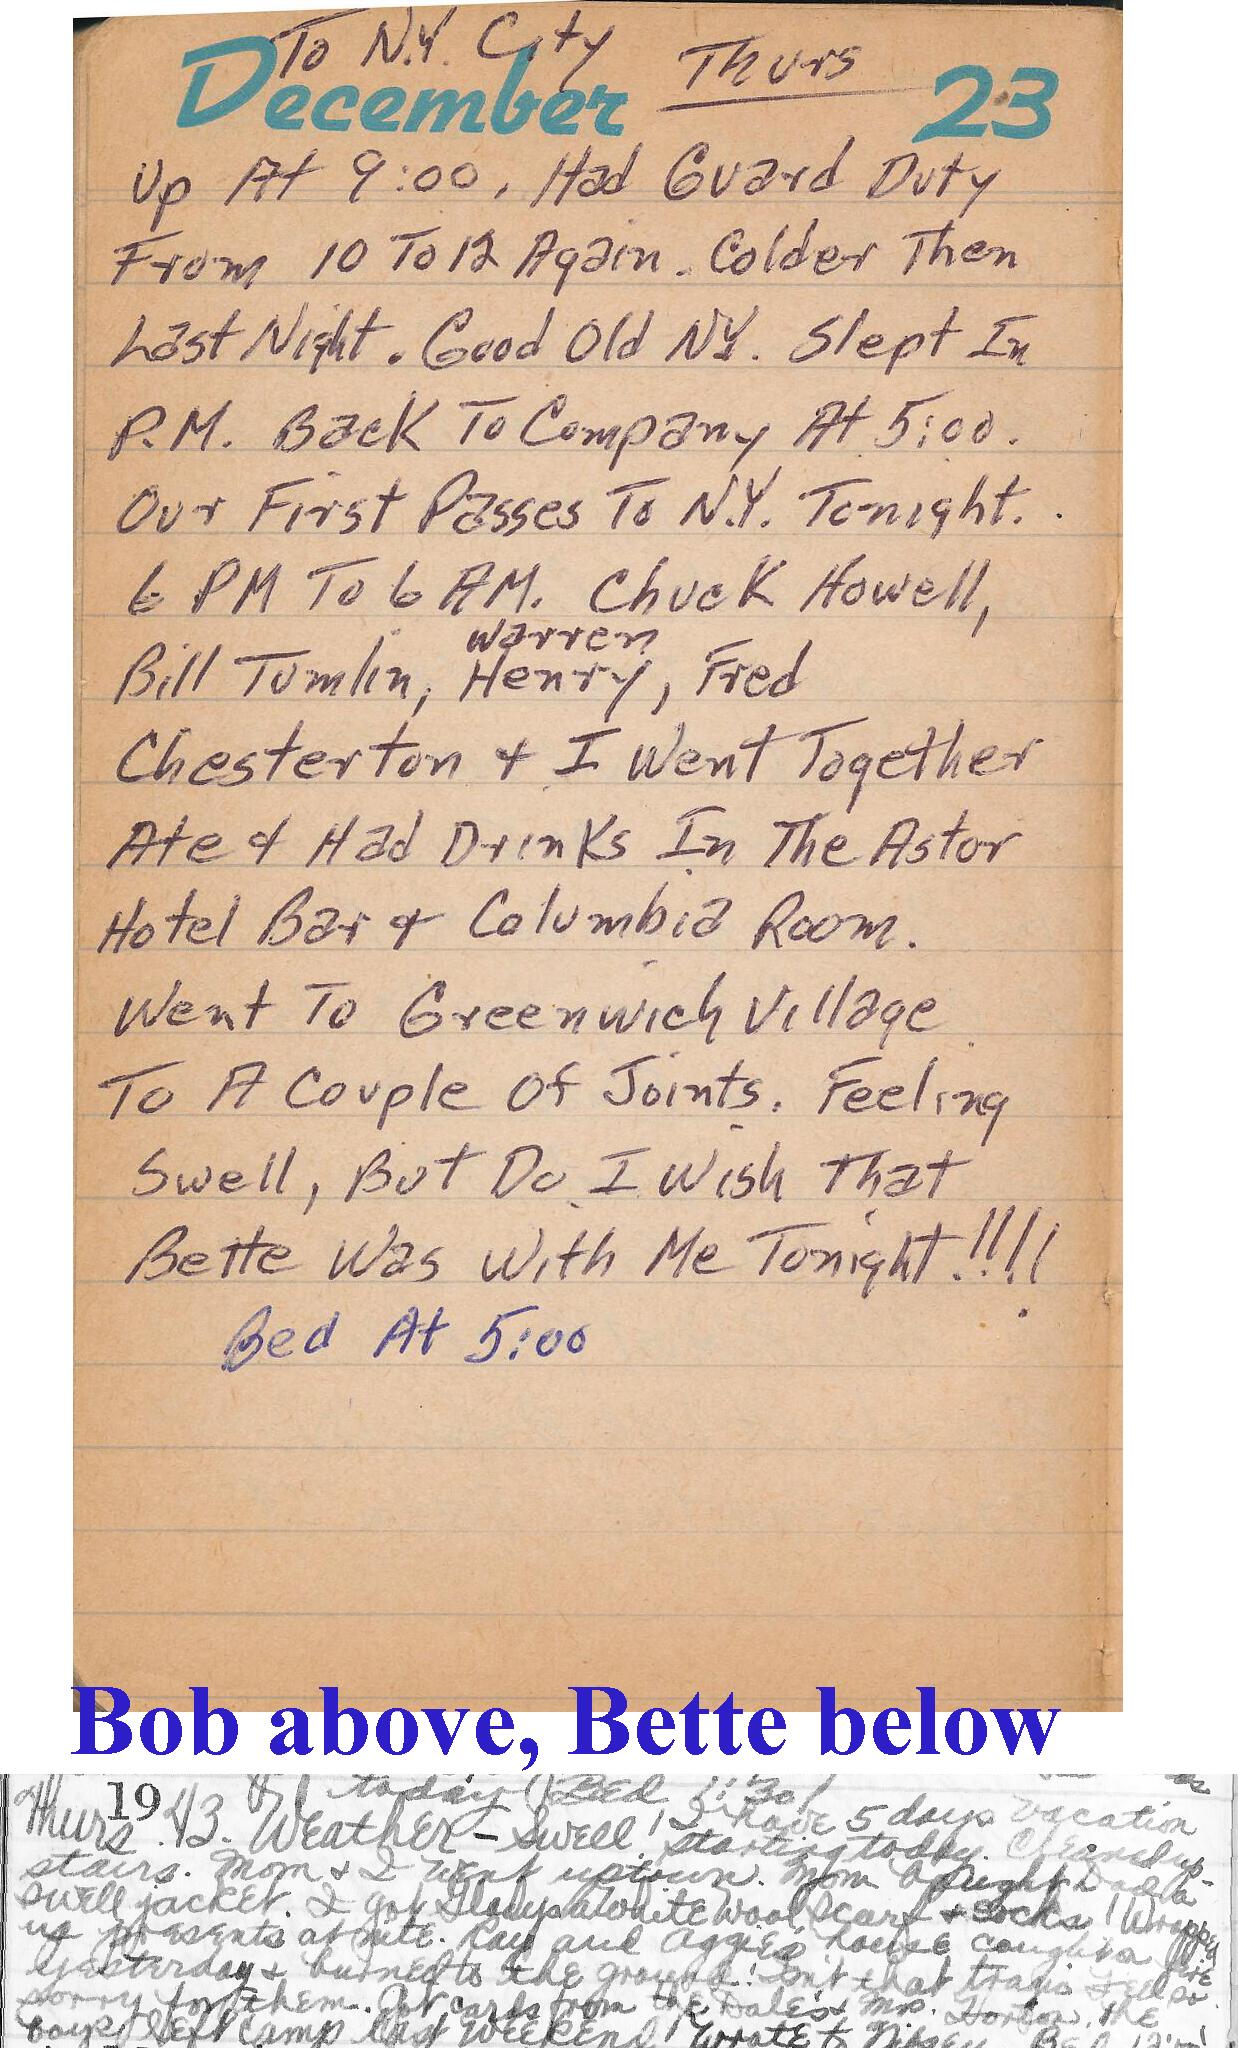 To N.Y. City Thurs
December 23
Up At 9:00. Had Guard Duty
From 10 To 12 Again. Colder Then
Last Night. Good Old N.Y. Slept In
P.M. Back To Company At 5:00.
Our First Passes To N.Y. Tonight.
6 PM To 6 AM. Chuck Howell,
Warren
Bill Tumlin, Henry, Fred
Chesterton & I Went Together
Ate & Had Drinks In The Astor
Hotel Bar & Columbia Room.
Went To Greenwich Village
To A Couple Of Joints. Feeling
Swell, But Do I Wish That
Bette Was With Me Tonight!!!!
Bed At 5:00
Bob above, Bette below
today Bed 1:30
19
Thurs. 43. Weather - Swell! I have 5 days vacation
starting today. Cleaned up-
stairs. Mom & I went uptown. Mom bought Dad a
swell jacket. I got Gladys a white wool scarf & socks! Wrapped
up presents at nite. Ray and Aggie's house caught on fire
yesterday & burned to the ground! Isn't that tragic I feel so
sorry for them. Got cards from the Dale's & Mrs. Horton. The
boys left camp last weekend! Wrote to Bed